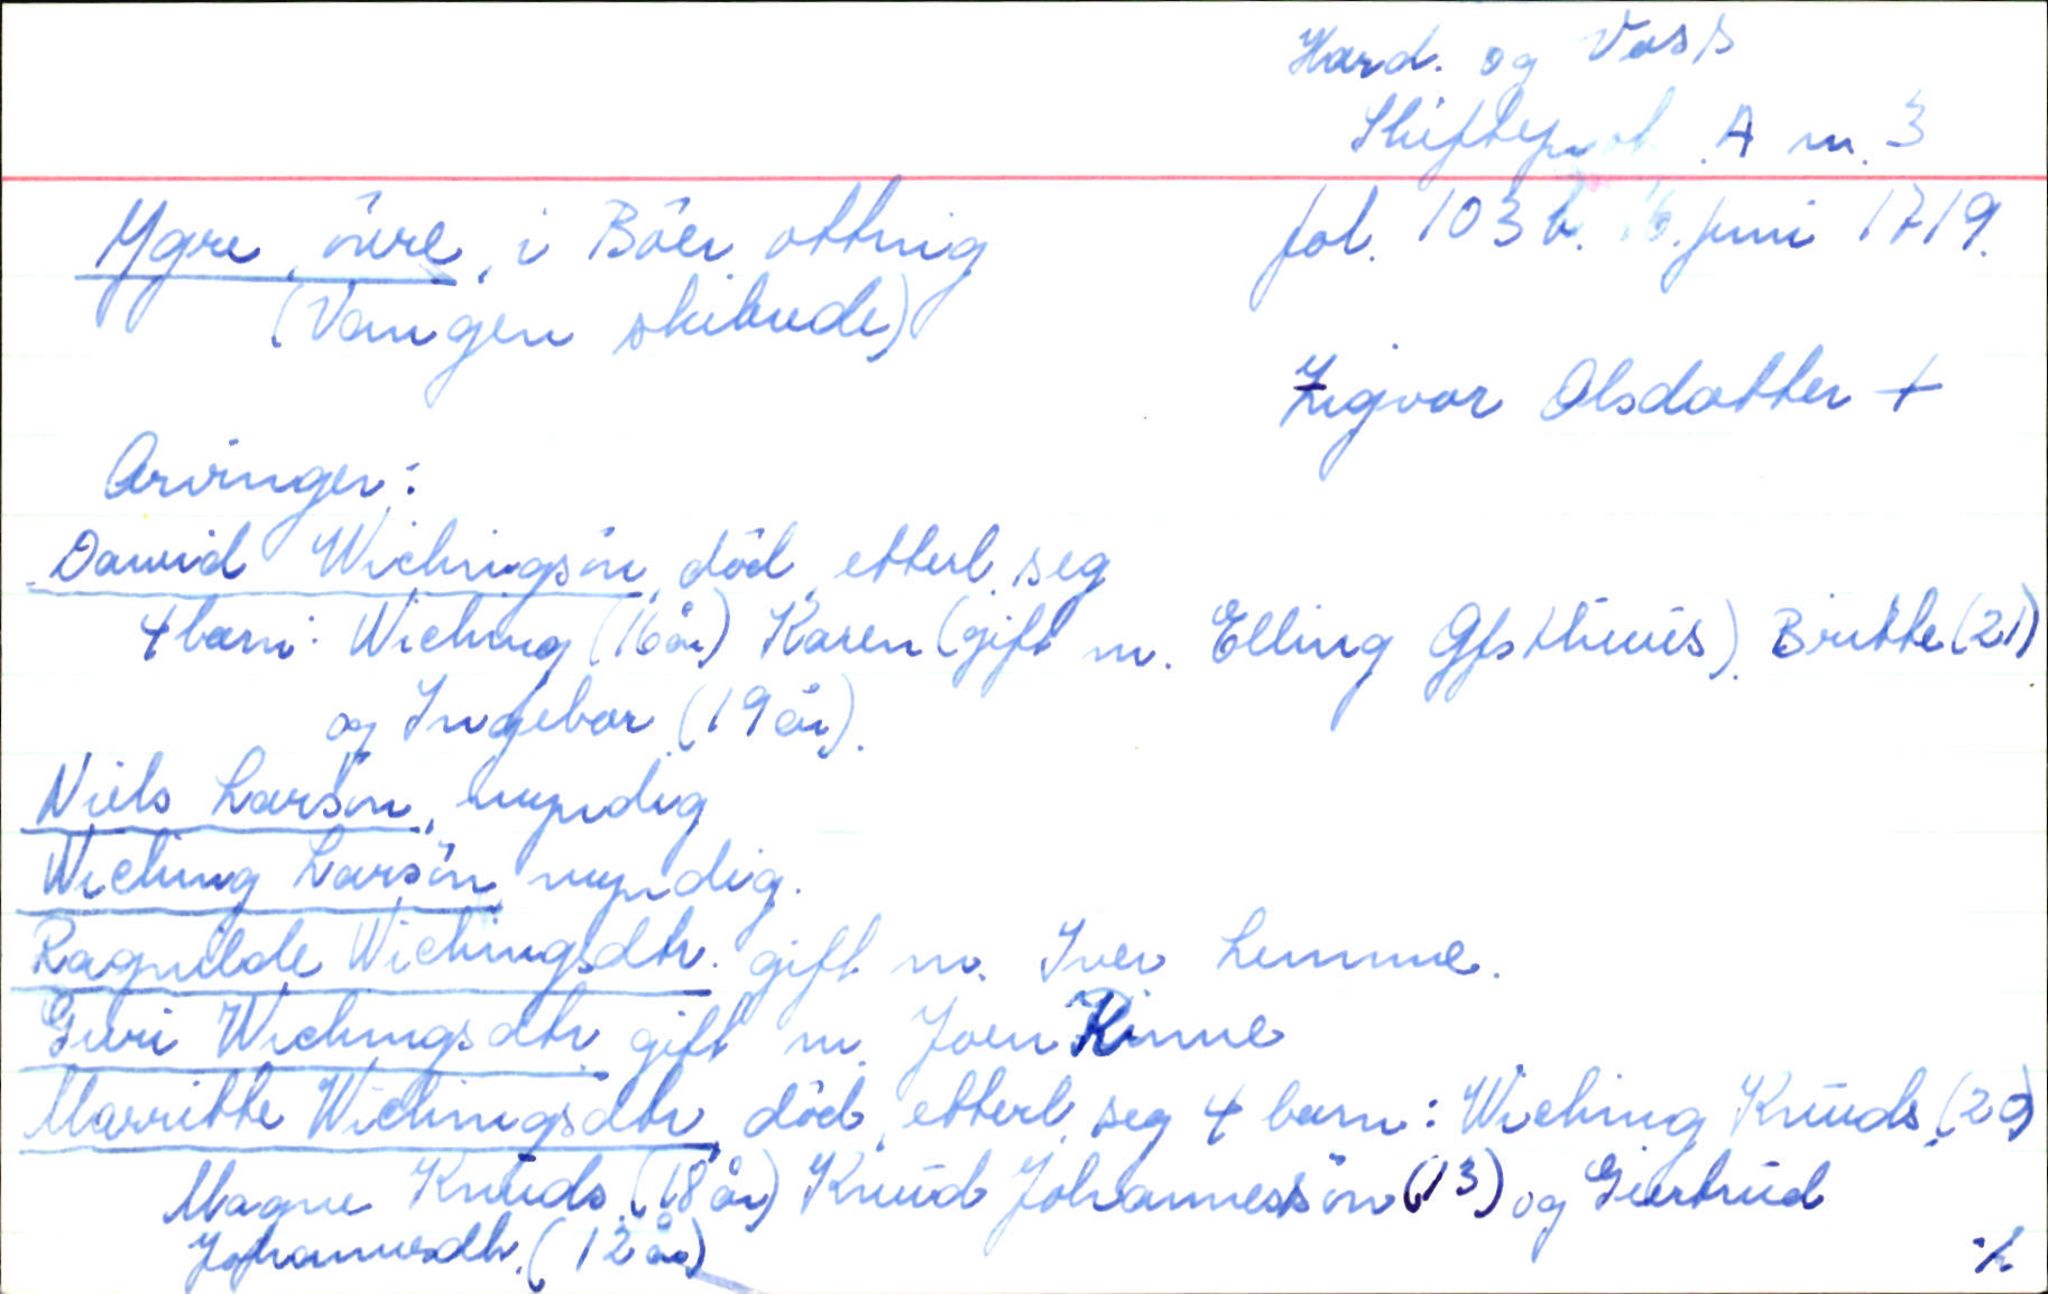 Hard. og Voss
Skifteprot. A nr. 3
Ygre, övre, i Böer ottnig fol. 103 b. 16. juni 1719.
(Vangen skibrede)
Zigvor Olsdatter +
Arvinger:
Dawid Wichingsön, död, etterl. seg
4 barn: Wiching (16 år) Karen (gift m. Elling Britte (21)
og Ingebor (19 år).
Niels Larsön, myndig
Wiching Larsön myndig.
Ragnilde Wichingsdtr. gift m. Iver Lemme.
Guri Wichingsdtr. gift m. Joen Rinne
Marritte Wichingsdtr, död, etterl. seg 4 barn: Wiching Knuds. (20)
Magne Knuds. (18 år) Knud Johannessön (13) og Giertrud
Johannesdtr. (12 år)